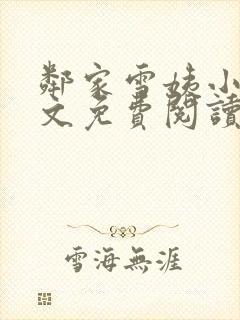 鄰家雪姨小
文免費閱讀
雪海無涯